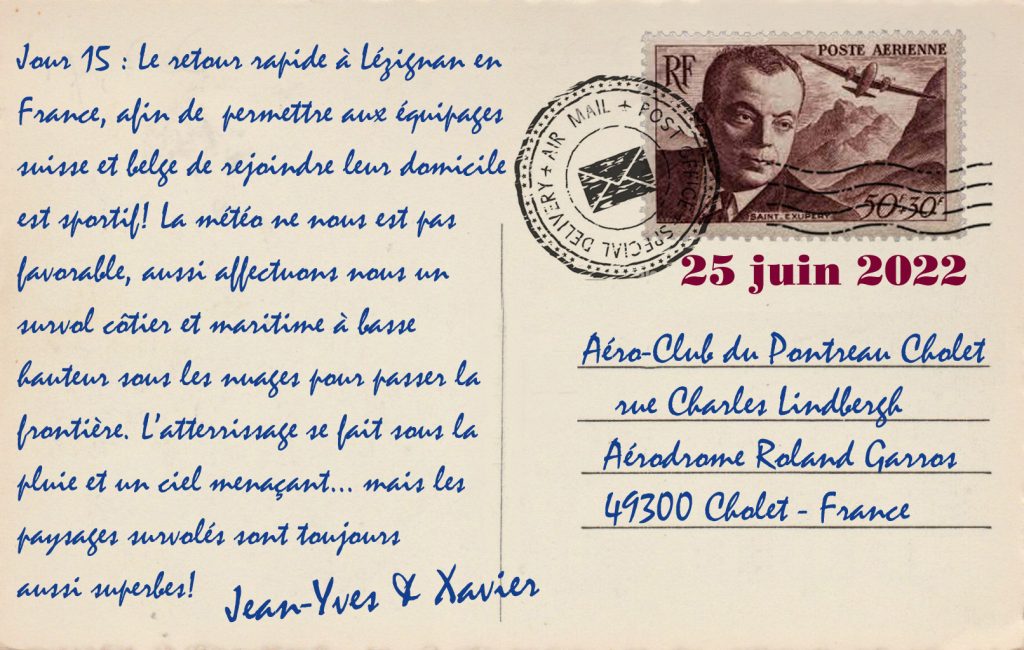 Jour 15 : Le retour rapide à Lézignan en
France, afin de permettre aux équipages
suisse et belge de rejoindre leur domicile
est sportif! La météo ne nous est pas
favorable, aussi affectuons nous un
survol côtier et maritime à basse
hauteur sous les nuages pour passer la
frontière. L'atterrissage se fait sous la
pluie et un ciel menaçant... mais les
paysages survolés sont toujours
aussi superbes!
Jean-Yves & Xavier
POSTE AERIENNE
RF
SAINT EXUPERY
50F+30F
AIR MAIL + POST OFFICE + SPECIAL DELIVERY +
25 juin 2022
Aéro-Club du Pontreau Cholet
rue Charles Lindbergh
Aérodrome Roland Garros
49300 Cholet - France